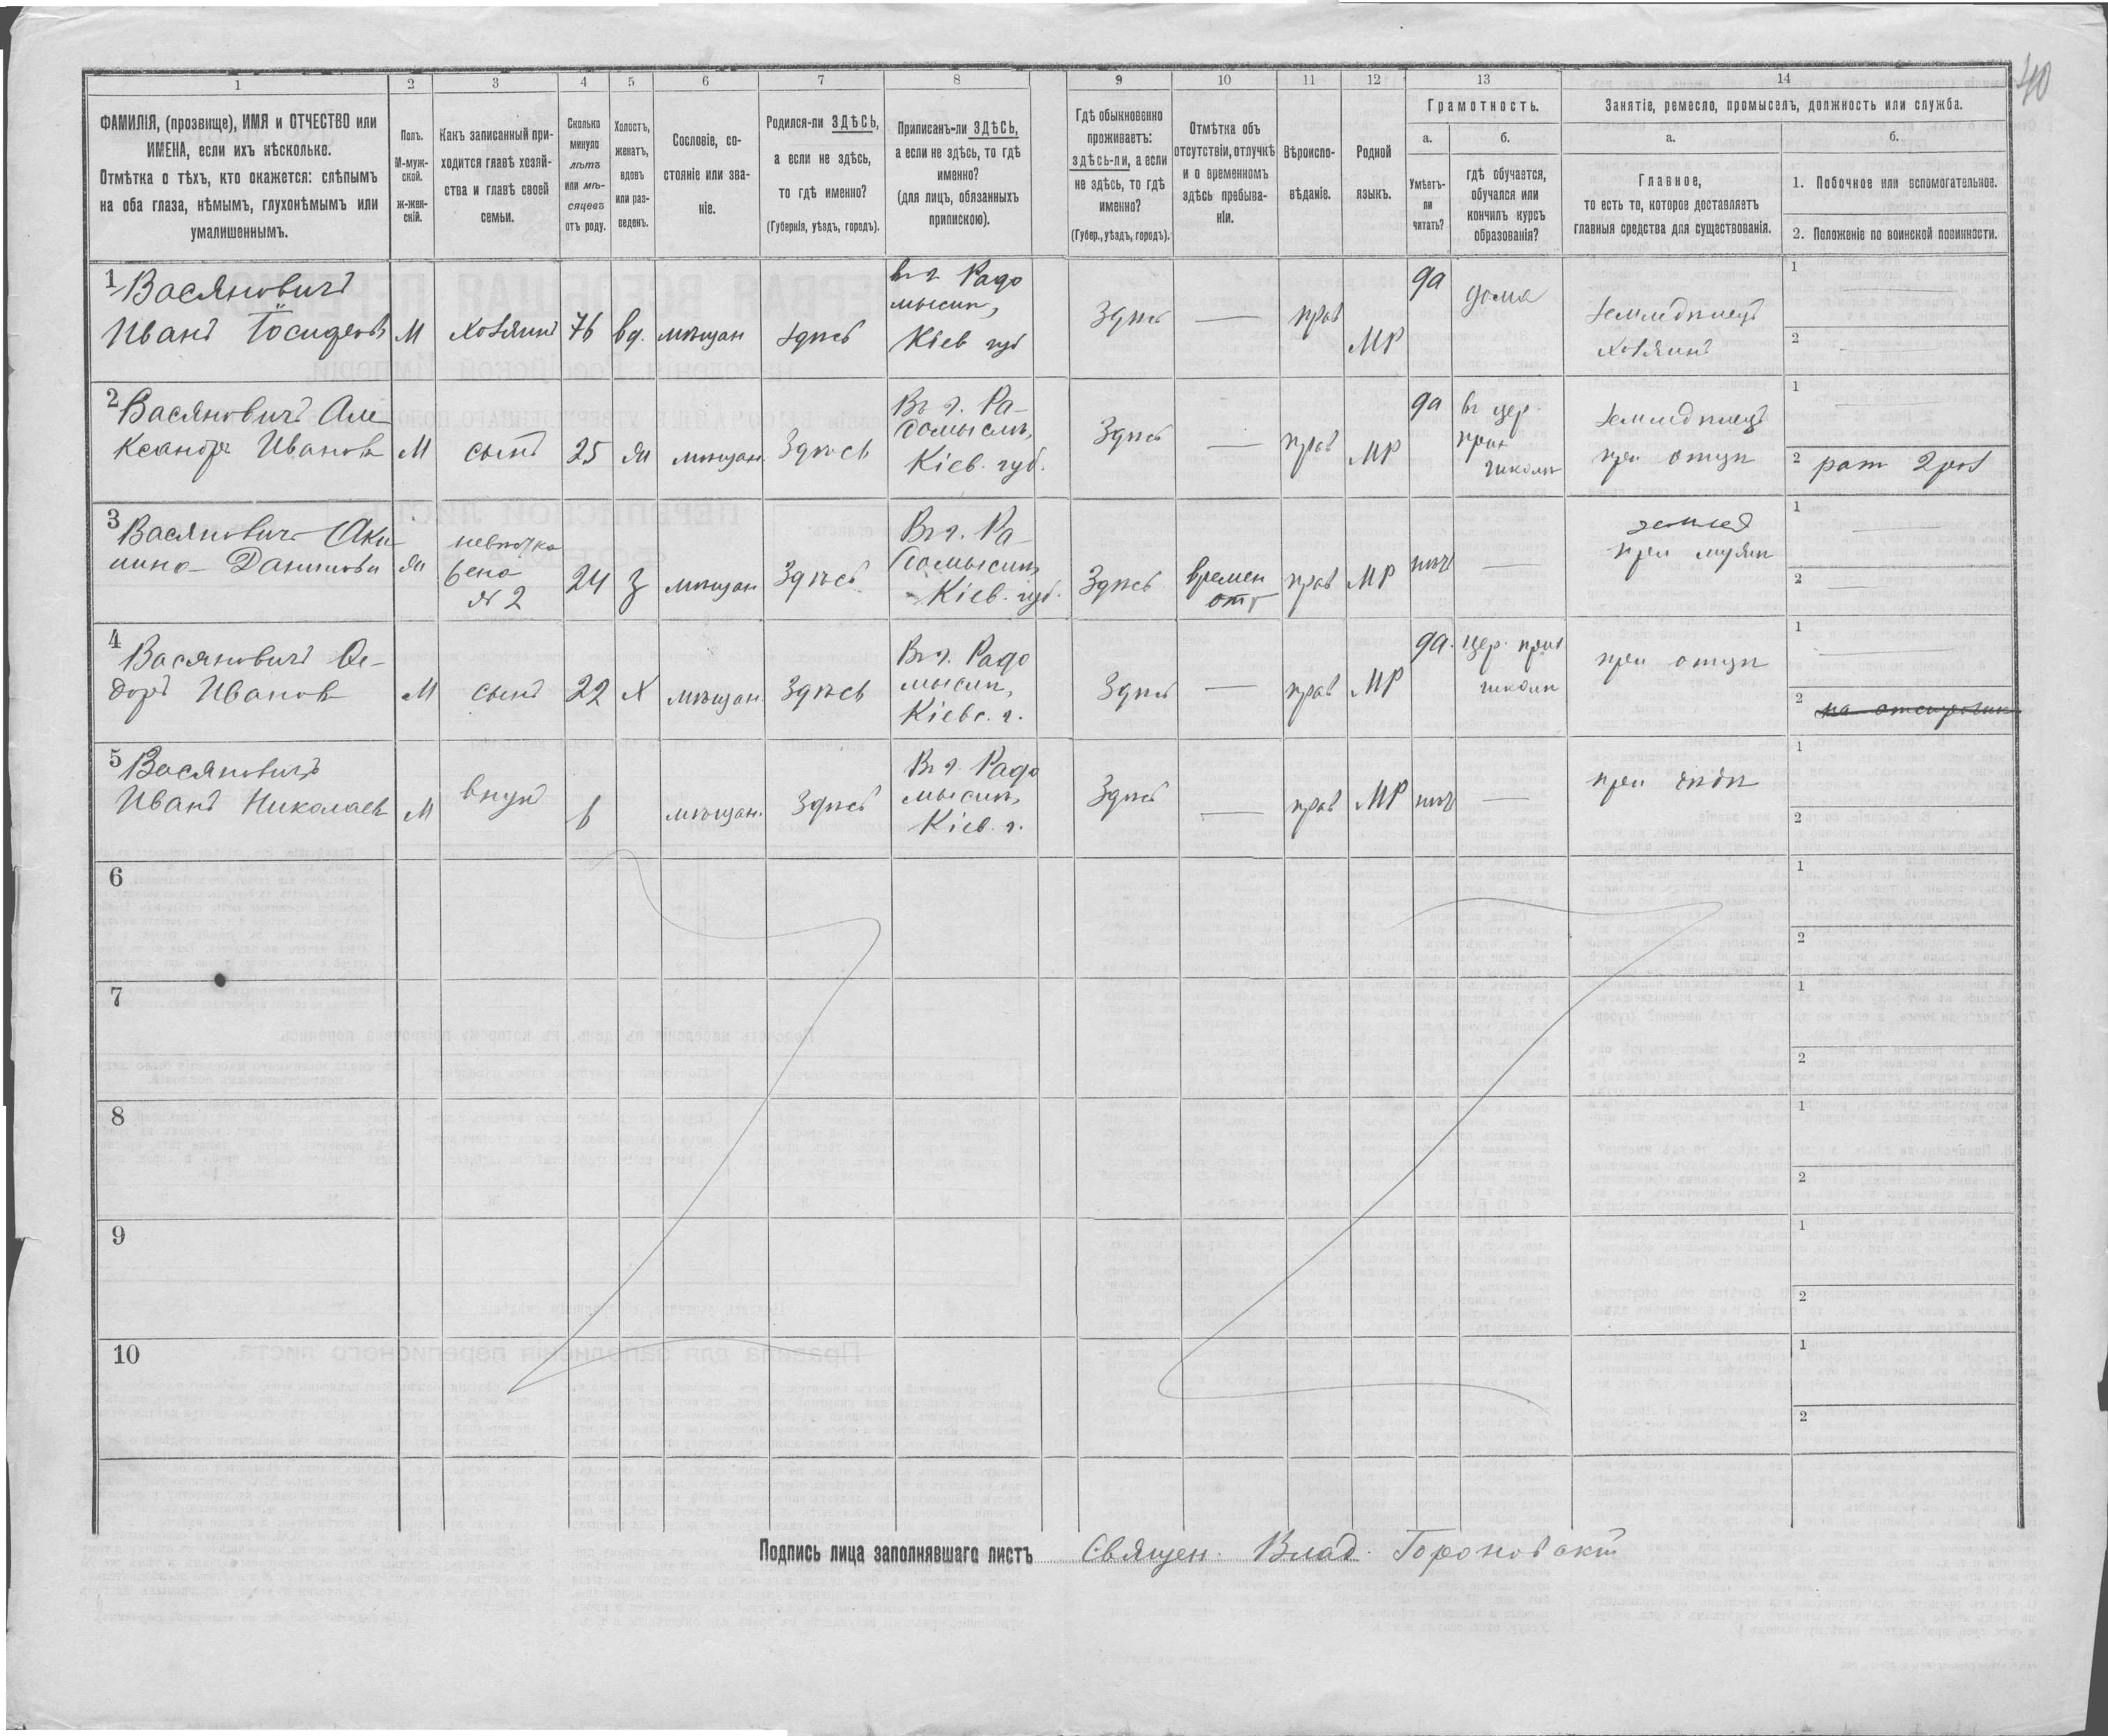 40
1 2 3 4 5 6 7 8 9 10 11 12 13 14
ФАМИЛІЯ, (прозвище), ИМЯ и ОТЧЕСТВО или
ИМЕНА, если ихъ нѣсколько.
Отмѣтка о тѣхъ, кто окажется: слѣпымъ
на оба глаза, нѣмымъ, глухонѣмымъ или
умалишеннымъ.
Полъ.
М-муж-
ской.
ж-жен-
скій.
Какъ записанный при-
ходится главѣ хозяй-
ства и главѣ своей
семьи.
Сколько
минуло
лѣтъ
или мѣ-
сяцевъ
отъ роду.
Холостъ,
женатъ,
вдовъ
или раз-
веденъ.
Сословіе, со-
стояніе или зва-
ніе.
Родился-ли ЗДѢСЬ,
а если не здѣсь,
то гдѣ именно?
(Губернія, уѣздъ, городъ).
Приписанъ-ли ЗДѢСЬ,
а если не здѣсь, то гдѣ
именно?
(для лицъ, обязанныхъ
припискою).
Гдѣ обыкновенно
проживаетъ:
здѣсь-ли, а если
не здѣсь, то гдѣ
именно?
(Губер., уѣздъ, городъ).
Отмѣтка объ
отсутствіи, отлучкѣ
и о временномъ
здѣсь пребыва-
ніи.
Вѣроиспо-
вѣданіе.
Родной
языкъ.
Грамотность.
а.
Умѣетъ-
ли
читать?
б.
гдѣ обучается,
обучался или
кончилъ курсъ
образованія?
Занятіе, ремесло, промыселъ, должность или служба.
а.
Главное,
то есть то, которое доставляетъ
главныя средства для существованія.
б.
1. Побочное или вспомогательное.
2. Положеніе по воинской повинности.
1 Васяновичъ
Иванъ Іосифовъ
М
хозяинъ
76
вд.
мѣщан
здѣсь
въ г. Радо
мыслѣ,
Кіев губ
Здѣсь
—
прав
МР
да
дома
Земледѣлецъ
хозяинъ
1 —
2 —
2 Васяновичъ Але
ксандръ Ивановъ
М
сынъ
25
ж
мѣщан.
Здѣсь
Въ г. Ра-
домыслѣ,
Кіев. губ.
Здѣсь
—
прав
МР
да
въ цер.
прих
школѣ
Земледѣлецъ
при отцѣ
1 —
2 рат 2 раз
3 Васяновичъ Аки
лина Данилова
ж
невѣстка
жена
№ 2
24
З
мѣщан
Здѣсь
Въ г. Ра-
домыслѣ
Кіев. губ.
Здѣсь
времен
отс
прав
МР
нѣтъ
—
землед
при мужѣ
1 —
2 —
4 Васяновичъ Ѳе-
доръ Ивановъ
М
сынъ
22
х
мѣщан.
Здѣсь
Въ г. Радо
мыслѣ,
Кіевс. г.
Здѣсь
—
прав
МР
да.
цер. прих
школѣ
при отцѣ
1 —
2 на отсрочкѣ
5 Васяновичъ
Иванъ Николаевъ
М
внукъ
мѣщан.
Здѣсь
Въ г. Радо
мыслѣ,
Кіев. г.
Здѣсь
—
прав
МР
нѣтъ
—
при дѣдѣ
1
2
6
1
2
7
1
2
8
1
2
9
1
2
10
1
2
Подпись лица заполнявшаго листъ Священ. Влад.